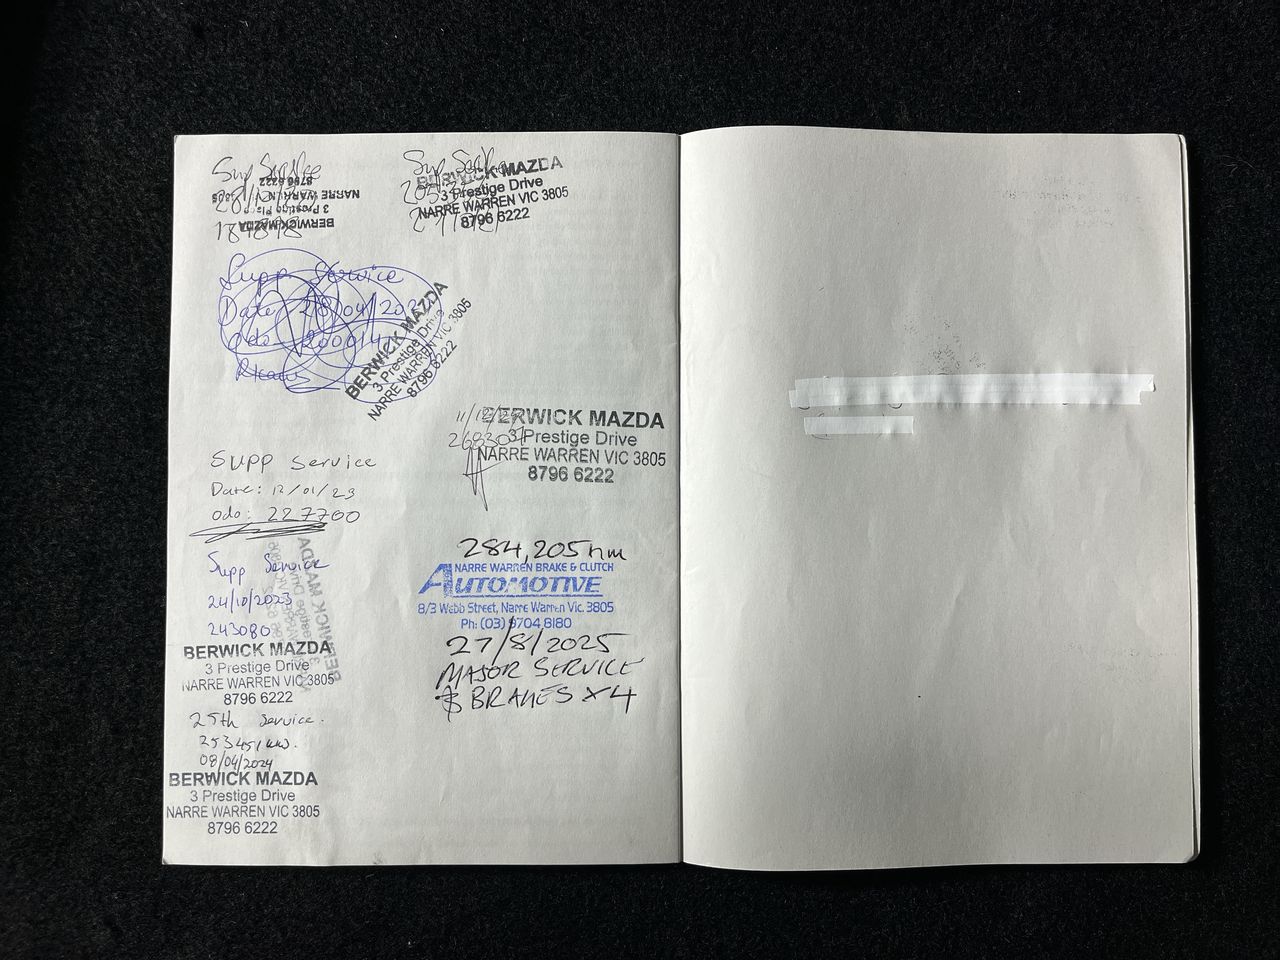 Sup Service
8796 6222
NARRE WARREN VIC 3805
3 Prestige Place
BERWICK MAZDA
Sup Service
BERWICK MAZDA
3 Prestige Drive
NARRE WARREN VIC 3805
8796 6222
Supp Service
Date 28/04/202
Odo 200014
BERWICK MAZDA
3 Prestige Drive
NARRE WARREN VIC 3805
8796 6222
11/12/24
268307
BERWICK MAZDA
3 Prestige Drive
NARRE WARREN VIC 3805
8796 6222
Supp Service
Date: 12/01/23
odo: 227700
Supp Service
24/10/2023
243080
BERWICK MAZDA
3 Prestige Drive
BERWICK MAZDA
3 Prestige Drive
NARRE WARREN VIC 3805
8796 6222
25th Service.
253451km.
08/04/2024
BERWICK MAZDA
3 Prestige Drive
NARRE WARREN VIC 3805
8796 6222
284,205km
NARRE WARREN BRAKE & CLUTCH
AUTOMOTIVE
8/3 Webb Street, Narre Warren Vic. 3805
Ph: (03) 9704 8180
27/8/2025
MAJOR SERVICE
& BRAKES X4